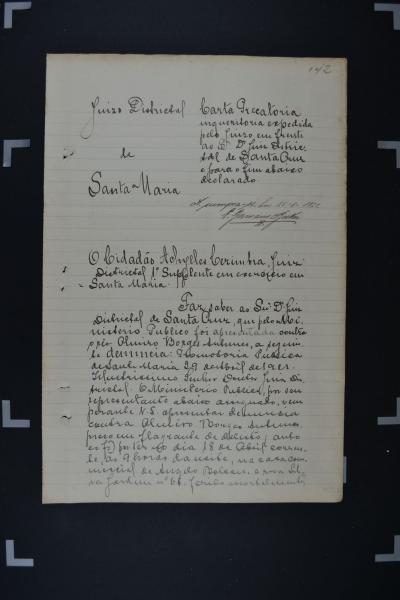 142
Juizo Districtal
de
Santa Maria
Carta Precatoria
inquiritoria expedida
pelo Juizo, em frente
ao Dr. Juiz Distric
tal de Santa Cruz
e para o fim abaixo
declarado
O Cidadão Achyles Cerinha, Juiz
Districtal 1º Supplente em exercicio em
Santa Maria.
Faz saber ao Snr. Dr. Juiz
Districtal de Santa Cruz, que pelo Mi
nisterio Publico foi apresentada contra
o réo Almiro Borges Antunes, a seguin
te denuncia: Promotoria Publica
de Santa Maria 29 de Abril de
Illustrissimo Senhor Doutor Juiz Dis
trictal. O Ministerio Publico, por seu
representante abaixo assignado, vem
perante V.S. apresentar denuncia
contra Almiro Borges Antunes,
preso em flagrante de delicto, auto
por ter no dia 18 de Abril corren
te, ás 9 horas da noite, na casa com
mercial de Angelo
Jardim nº 66, ferido mortalmente